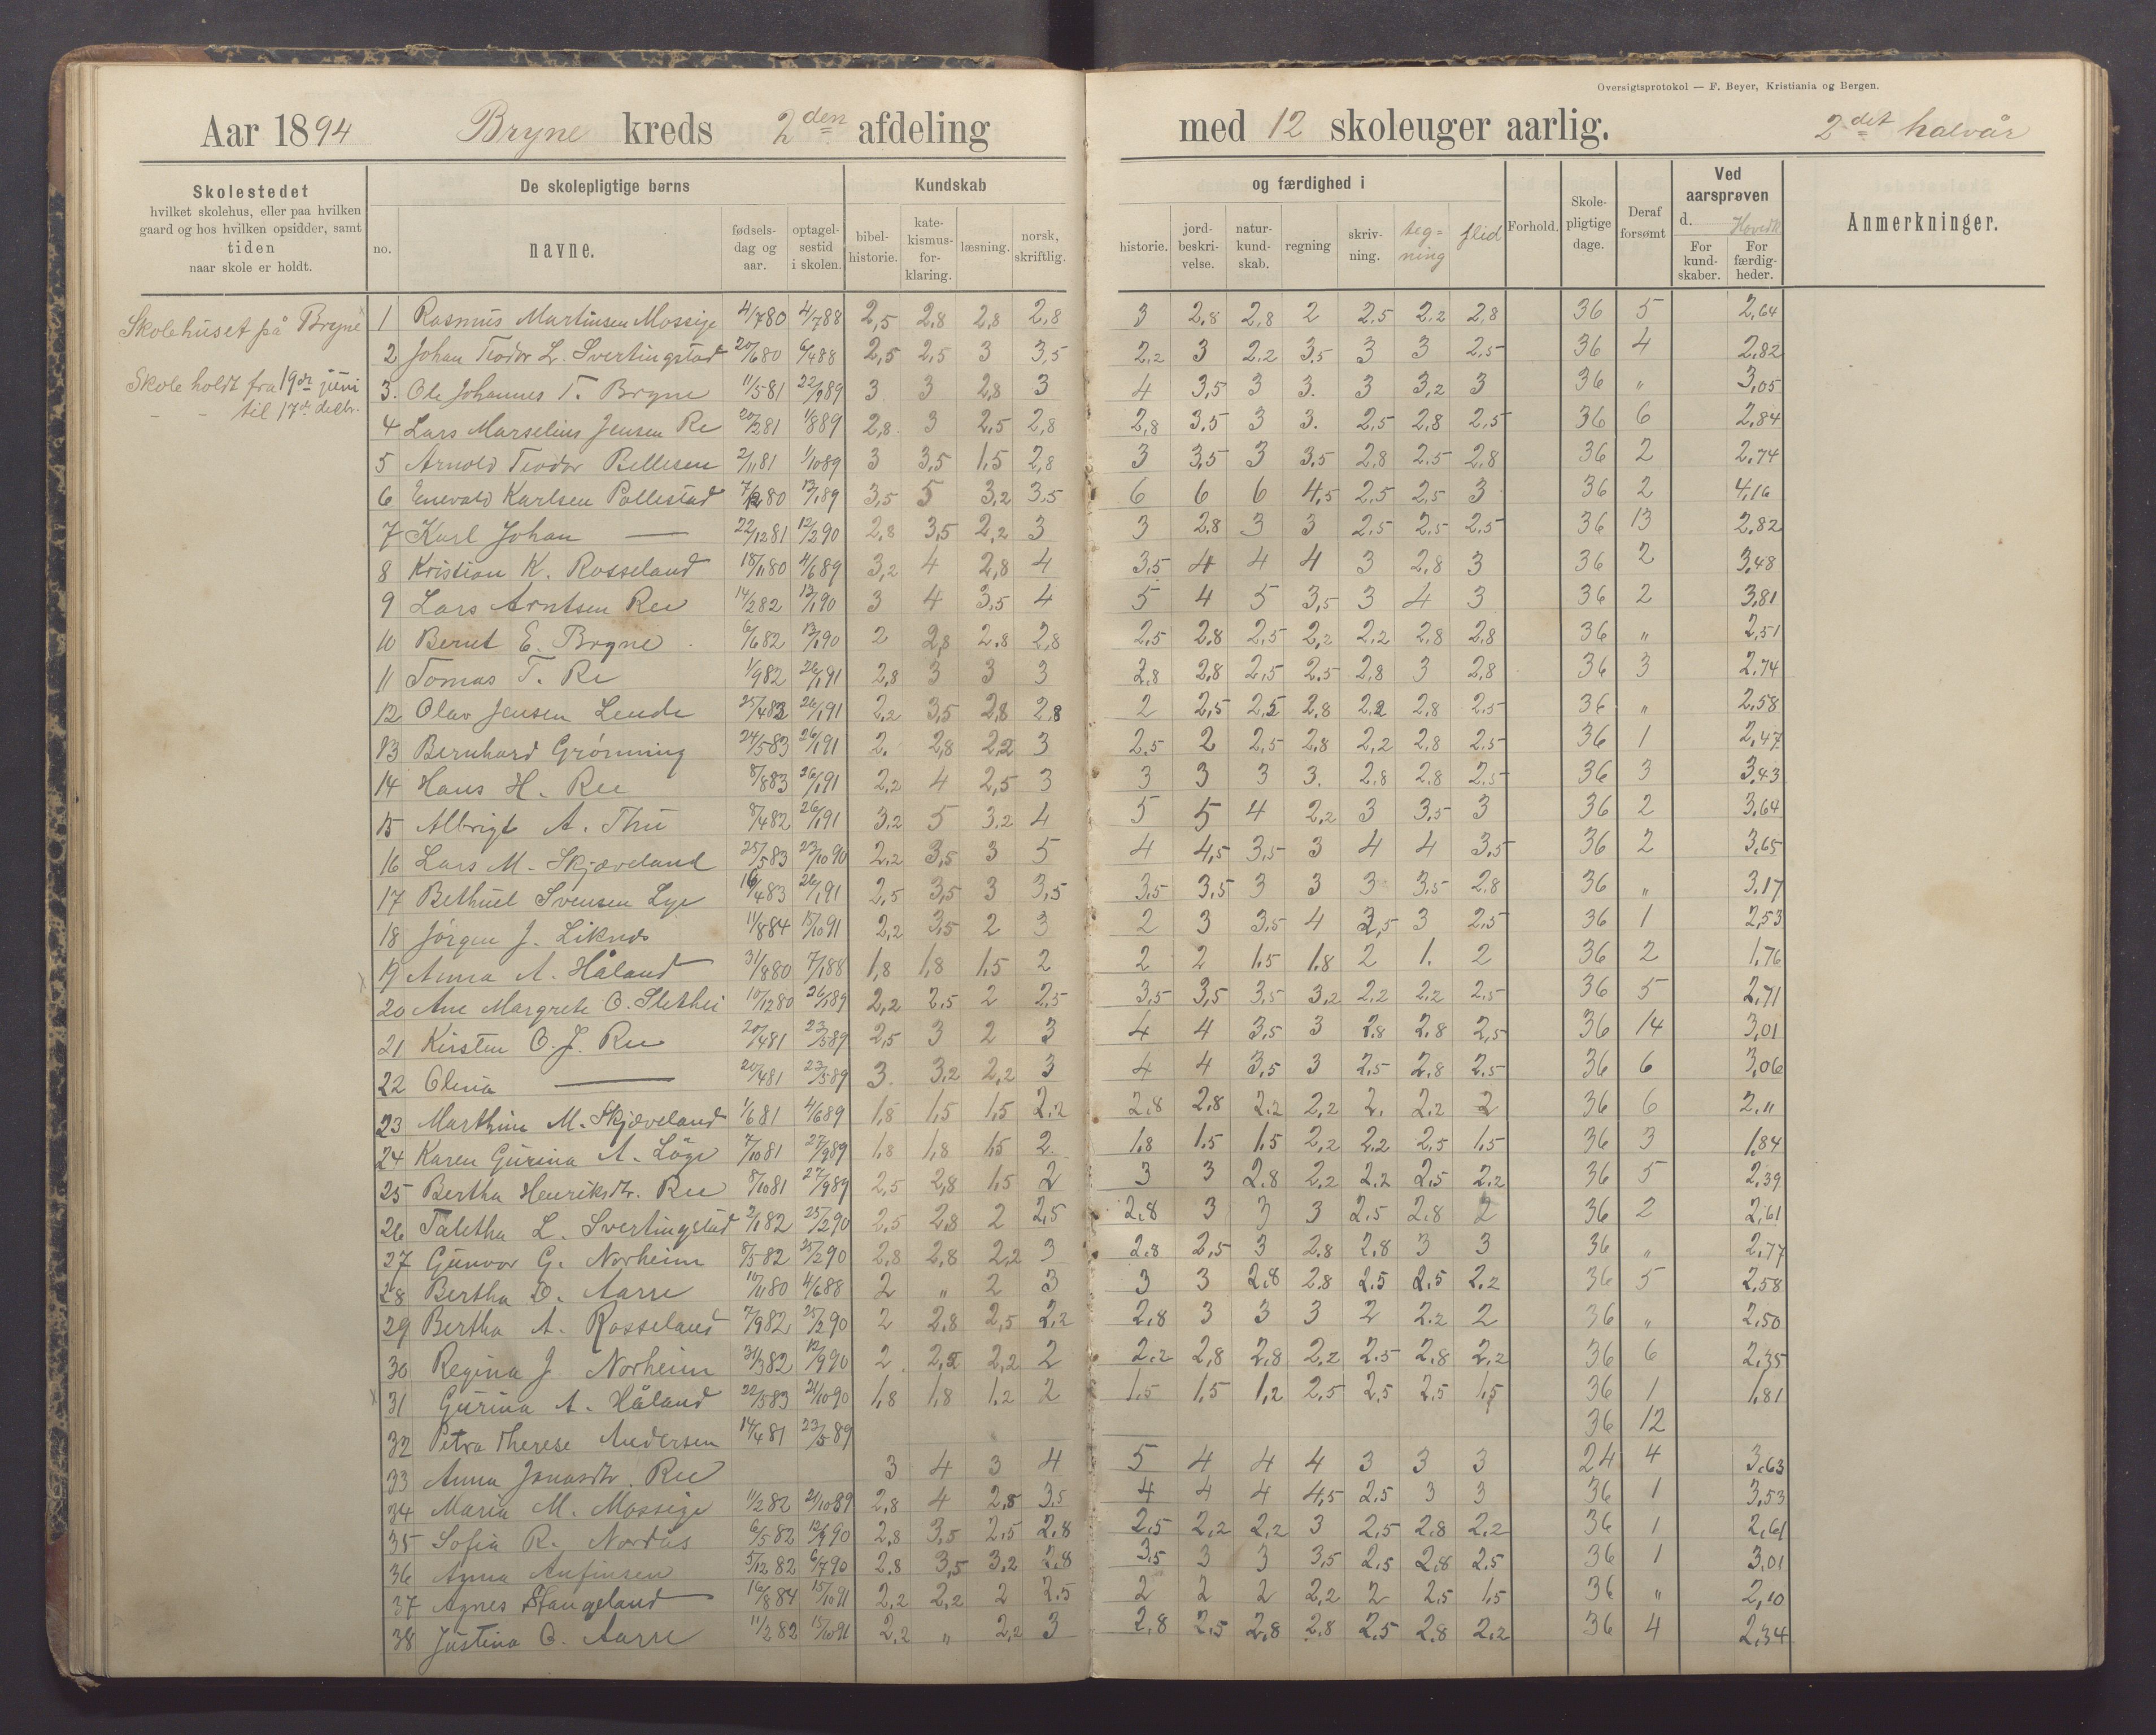 Oversigtsprotokol — F. Beyer, Kristiania og Bergen.
Aar 1894 Bryne kreds 2den afdeling med 12 skoleuger aarlig. 2det halvår
Skolestedet
hvilket skolehus, eller paa hvilken
gaard og hos hvilken opsidder, samt
tiden
naar skole er holdt.
De skolepligtige børns
no. navne. fødsels-dag og aar. optagel-sestid i skolen.
Kundskab og færdighed i
bibel-historie. kate-kismus-for-klaring. læsning. norsk, skriftlig. historie. jord-beskri-velse. natur-kund-skab. regning skriv-ning. teg-ning flid
Forhold. Skole-pligtige dage. Deraf forsømt Ved aarsprøven d. For kund-skaber. For færdig-heder. Anmerkninger.
Skolehuset på Bryne
Skole holdt fra 19de juni
- - til 17de decbr.
1 Rasmus Martinsen Mossige 4/7 80 4/7 88 2,5 2,8 2,8 2,8 3 2,8 2,8 2 2,5 2,2 2,8 36 5 2,64
2 Johan Teodor L. Svertingstad 20/6 80 6/4 88 2,5 2,5 3 3,5 2,2 3 2,2 3,5 3 3 2,5 36 4 2,82
3. Ole Johannes T. Bryne 11/5 81 22/9 89 3 3 2,8 3 4 3,5 3 3. 3 3,2 3 36 " 3,05
4 Lars Marselius Jensen Re 20/2 81 1/8 89 2,8 3 2,5 2,8 2,8 3,5 3 3. 2,5 2,8 2,5 36 6 2,84
5 Arnold Teodor Bellesen 2/11 81 1/10 89 3 3,5 1,5 2,8 3 3,5 3 3,5 2,8 2,5 2,8 36 2 2,74
6 Enevald Karlsen Pollestad 7/12 80 13/1 89 3,5 5 3,2 3,5 6 6 6 4,5 2,5 2,5 3 36 2 4,16
7 Karl Johan — 22/12 81 12/2 90 2,8 3,5 2,2 3 3 2,8 3 3 2,5 2,5 2,5 36 13 2,82
8 Kristian K. Rosseland 18/1 80 4/6 89 3,2 4 2,8 4 3,5 4 4 4 3 2,8 3 36 2 3,48
9 Lars Arntsen Ree 14/2 82 13/1 90 3 4 3,5 4 5 4 5 3,5 3 4 3 36 2 3,81
10 Bernt E. Bryne 6/6 82 13/1 90 2 2,8 2,8 2,8 2,5 2,8 2,5 2,2 2,2 2,8 2,8 36 " 2,51
11 Tomas T. Re 1/9 82 26/1 91 2,8 3 3 3 2,8 2,8 2,5 2,5 2,8 3 2,8 36 3 2,74
12 Olav Jensen Lende 25/4 82 26/1 91 2,2 3,5 2,8 2,8 2 2,5 2,5 2,8 2,2 2,8 2,5 36 " 2,58
13 Bernhard Grönning 24/5 83 26/1 91 2. 2,8 2,2 3 2,5 2 2,5 2,8 2,2 2,8 2,5 36 1 2,47
14 Hans H. Ree 8/8 83 26/1 91 2,2 4 2,5 3 3 3 3 3. 2,8 2,8 2,5 36 3 3,43
15 Albrigt A. Thu 8/4 82 26/1 91 3,2 5 3,2 4 5 5 4 2,2 3 3,5 3 36 2 3,64
16 Lars M. Skjæveland 25/5 83 23/10 90 2,2 3,5 3 5 4 4,5 3,5 3 4 4 3,5 36 2 3,65
17 Bethuel Svensen Lye 16/4 83 26/1 91 2,5 3,5 3 3,5 3,5 3,5 3 3 3 3,5 2,8 36 " 3,17
18 Jörgen J. Liknes 11/8 84 15/10 91 2,2 3,5 2 3 2 3 3,5 4 2,5 3 2,5 36 1 2,53
19 Anna A. Håland 31/8 80 7/1 88 1,8 1,8 1,5 2 2 2 1,5 1,8 2 1. 2 36 2 1,76
20 Ane Margrete O. Slethei 10/12 80 26/1 89 2,2 2,5 2 2,5 3,5 3,5 3,5 3,2 2,2 2,2 2,5 36 5 2,71
21 Kirsten O. J. Ree 20/4 81 23/5 89 2,5 3 2 3 4 4 3,5 3 2,8 2,8 2,5 36 14 3,01
22 Olina — 20/4 81 23/5 89 3. 3,2 2,2 3 4 4 3,5 3 2,5 2,8 2,5 36 6 3,06
23 Marthine M. Skjæveland 1/6 81 4/6 89 1,8 1,5 1,5 2,2 2,8 2,8 2,2 2,2 2. 2,2 2 36 6 2,11
24 Karen Gurina A. Löge 7/10 81 27/9 89 1,8 1,8 1,5 2. 1,8 1,5 1,5 2,2 2,2 2,5 1,5 36 3 1,84
25 Bertha Henriksdtr. Ree 8/10 81 27/9 89 2,5 2,8 1,5 2 3 3 2,8 2,2 2,2 2,5 2,2 36 5 2,39
26 Taletha L. Svertingstad 2/1 82 25/2 90 2,5 2,8 2 2,5 2,8 3 3 3 2,5 2,8 2 36 2 2,61
27 Gunvor G. Norheim 8/5 82 25/2 90 2,8 2,8 2,2 3 2,8 2,5 3 2,8 2,8 3 3 36 " 2,77
28 Bertha O. Aarre 10/1 80 4/6 88 2 " 2 3 3 3 2,8 2,8 2,5 2,5 2,2 36 5 2,58
29 Bertha A. Rosseland 7/9 82 25/2 90 2 2,8 2,5 2,2 2,8 3 3 3 2 2,2 2 36 " 2,50
30 Regina J. Norheim 31/3 82 12/9 90 2 2,5 2,2 2 2,2 2,8 2,8 2,2 2,5 2,8 2,2 36 6 2,35
31 Gurina A. Håland 22/5 83 21/10 90 1,8 1,8 1,2 2 1,5 1,5 1,2 2,5 2,5 2,5 1,5 36 1 1,81
32 Petra Therese Andersen 14/4 81 23/5 89 36 12
33 Anna Jonasdtr. Ree 3 4 3 4 5 4 4 4 3 3 3 24 4 3,63
34 Maria M. Mossige 11/2 82 21/10 89 2,8 4 2,8 3,5 4 4 4 4,5 2,5 3 3 36 1 3,53
35 Sofia R. Nordås 6/5 82 12/9 90 2,8 3,5 2,5 2,8 2,5 2,2 2,2 3 2,5 2,8 2,2 36 1 2,61
36 Anna Anfinsen 5/12 82 6/7 90 2,8 3,5 3,2 2,8 3,5 3 3 3,5 2,5 2,8 2,5 36 1 3,01
37 Agnes Stangeland 16/8 84 15/10 91 2,2 2,2 2 2,5 2 2 2 2,2 2 2,5 1,5 36 " 2,10
38 Justina O. Aarre 11/2 82 15/10 91 2,2 " 2,2 3 2,8 2,5 2,8 2,8 2,5 2,8 2,2 36 4 2,34